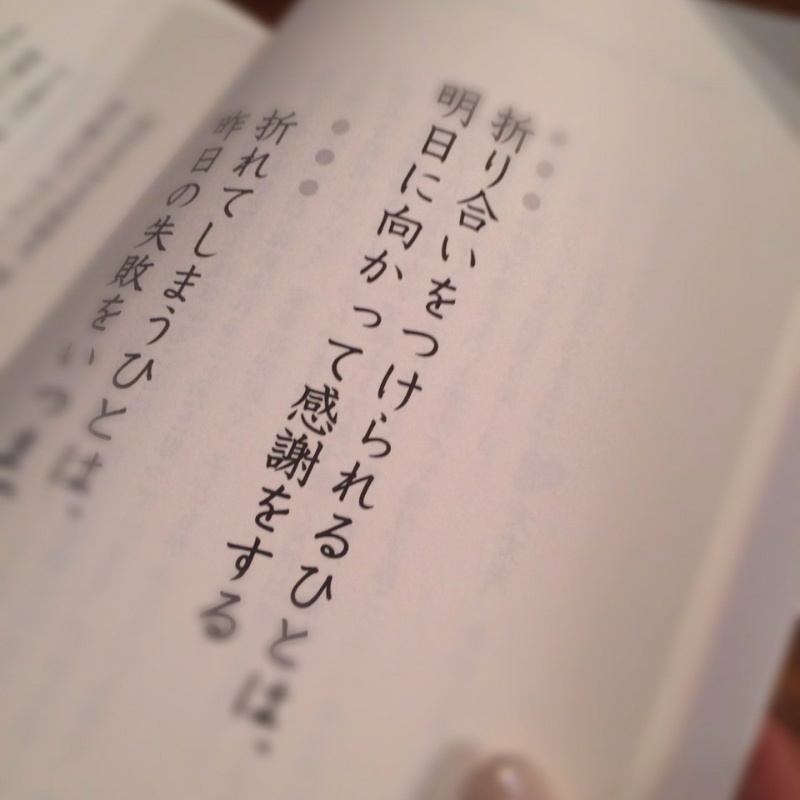 折り合いをつけられるひとは、
明日に向かって感謝をする
折れてしまうひとは、
昨日の失敗をいつま